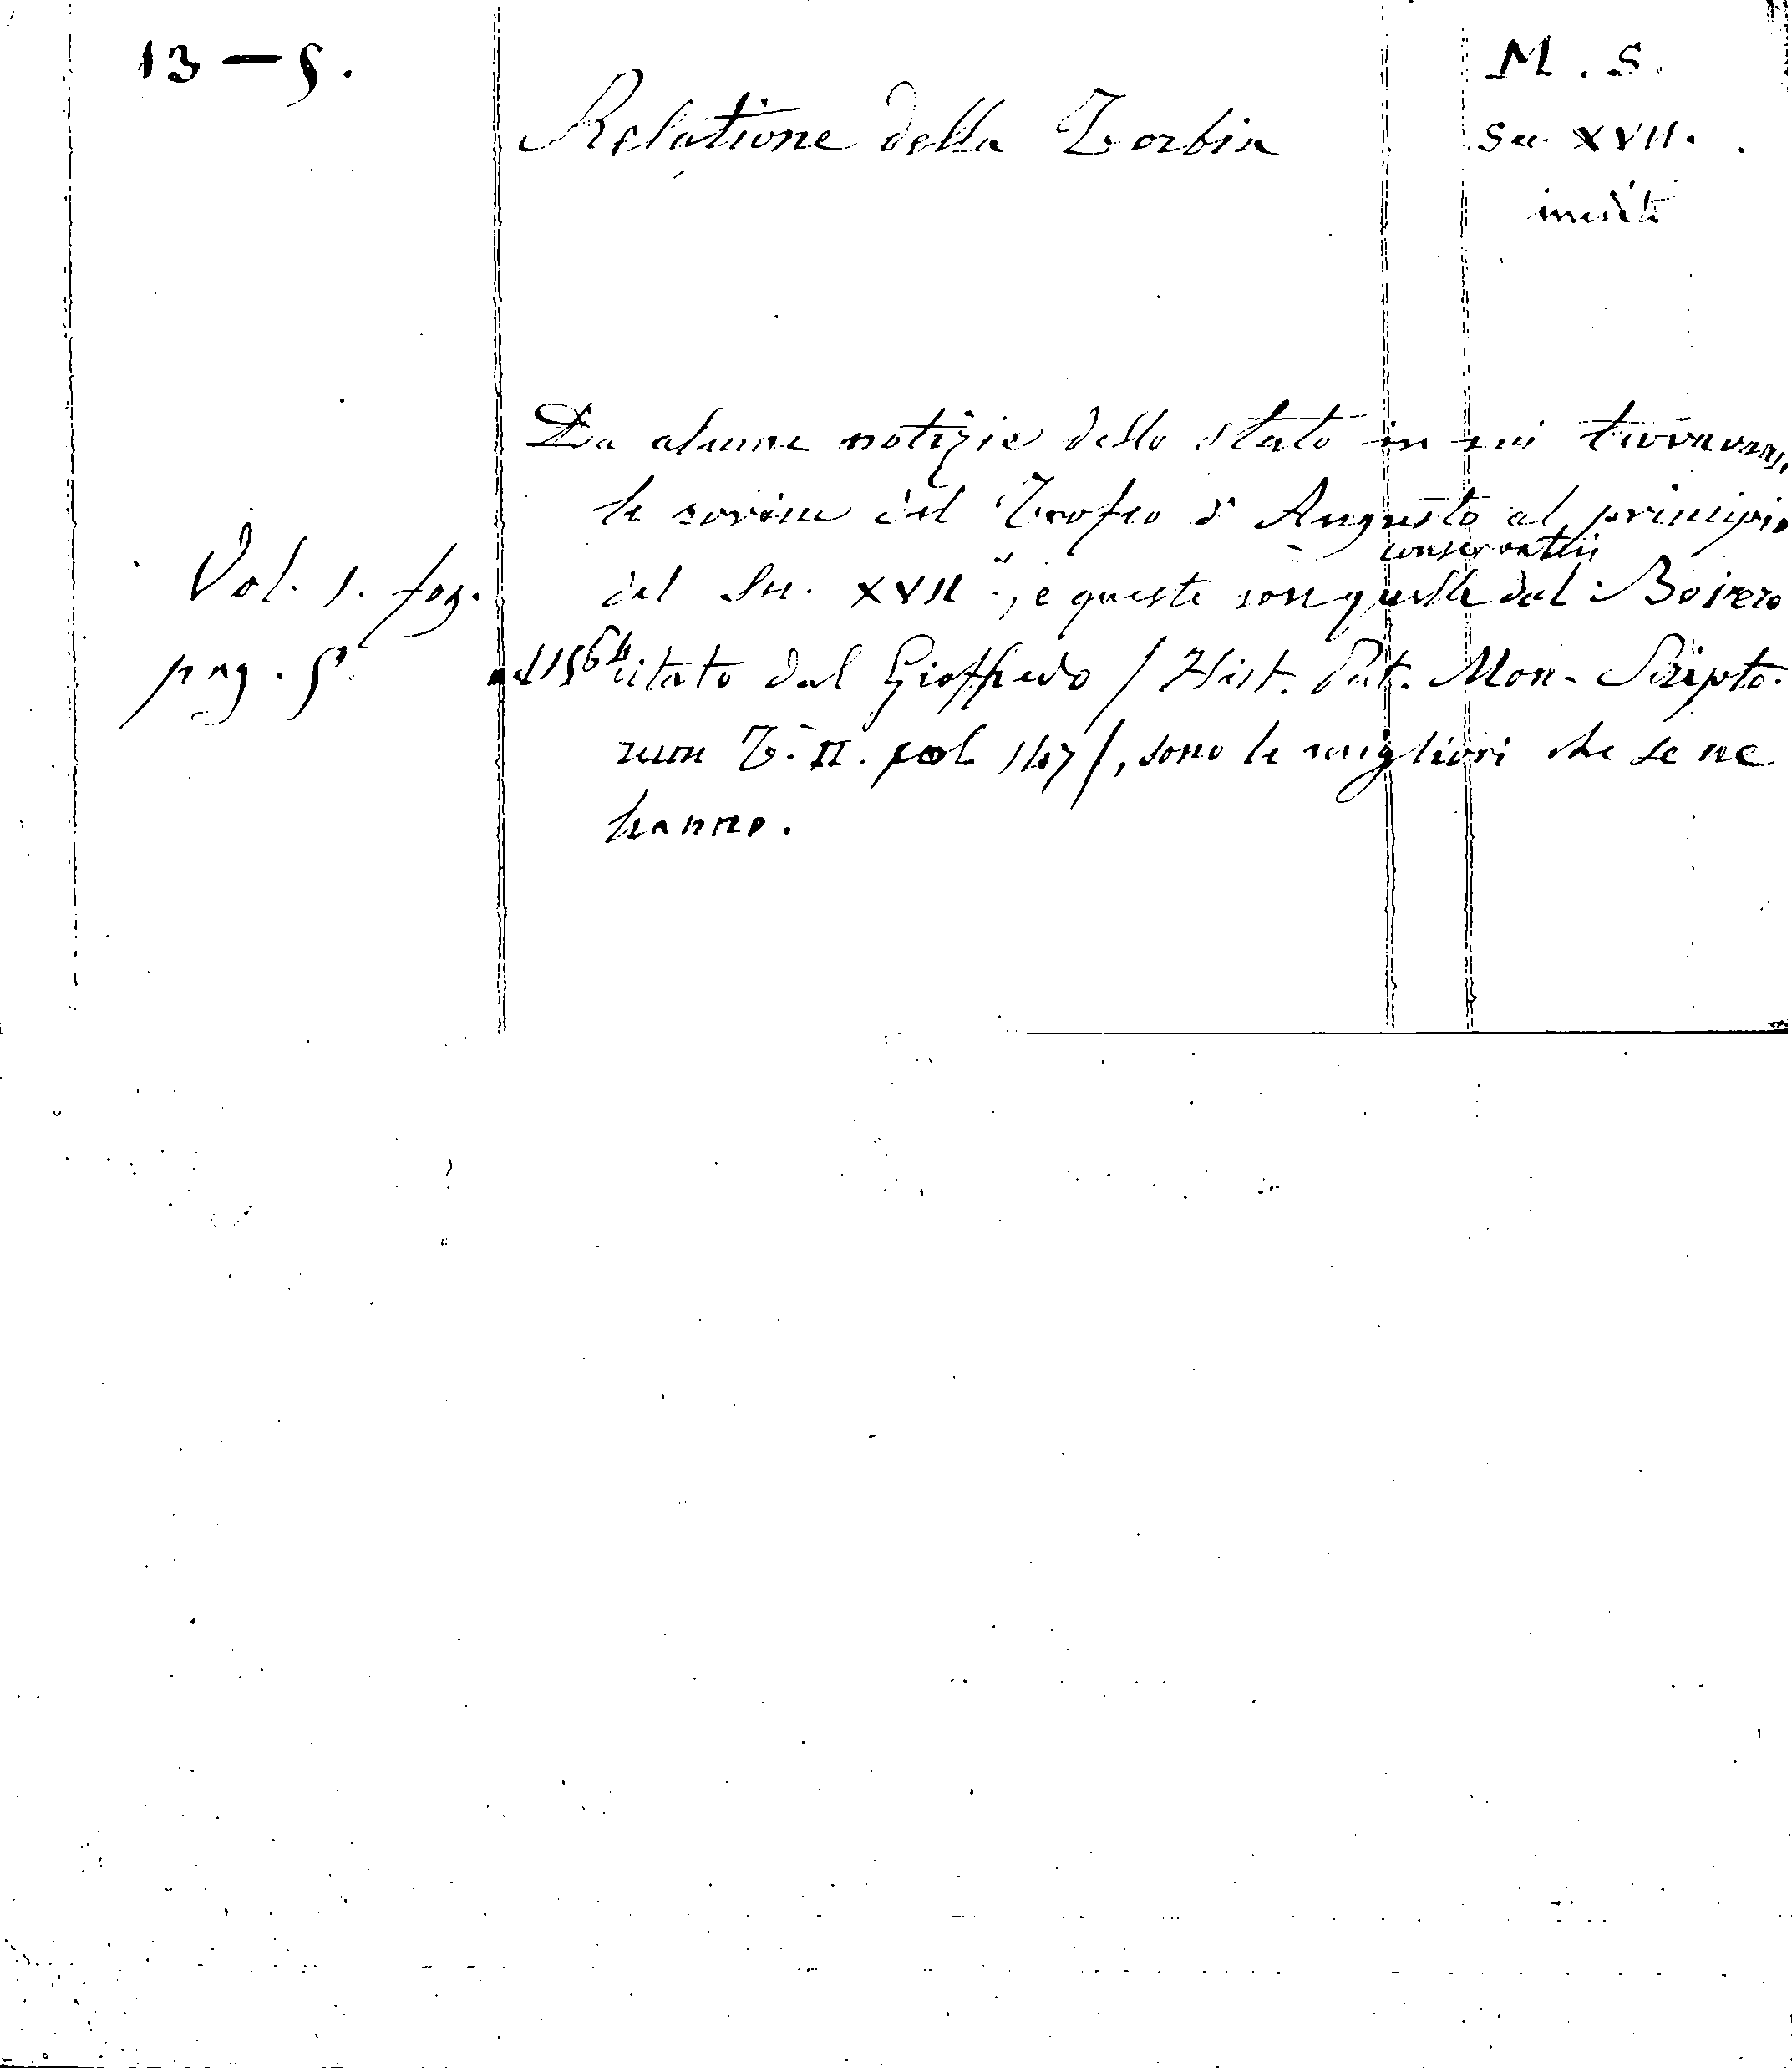 13 — 5.
Relatione della Torbia
M. S.
Sec. XVII.
inedito
Da alcune notizie dello stato in cui trovavansi
le rovine del Trofeo d'Augusto al principio
conservateci
del Sec. XVII., e queste con quelle del Boirero
nel 1564 citato dal Gioffredo / Hist. Pat. Mon. Scripto-
rum T. II. col. 147 /, sono le migliori che se ne
hanno.
Vol. 1.
pag. 5